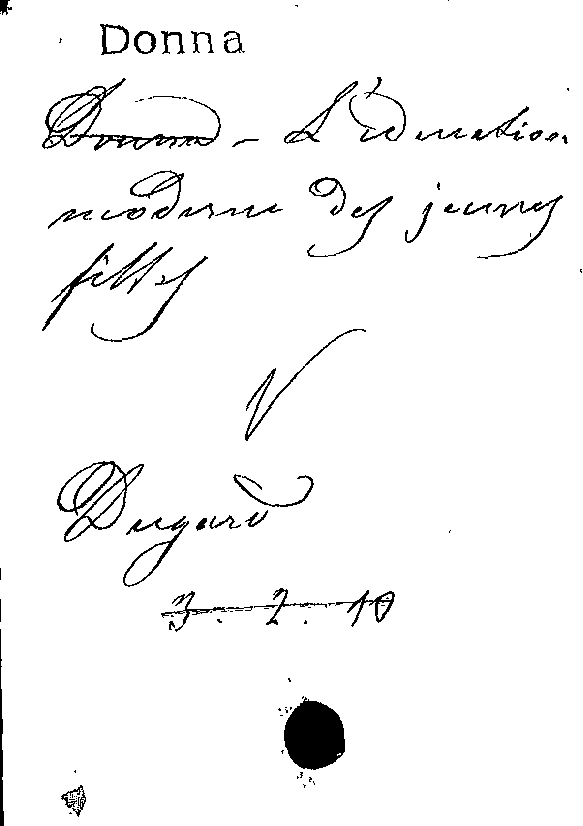 Donna
Donna - L'éducation
moderne des jeunes
filles
V
Dugard
3. 2. 10